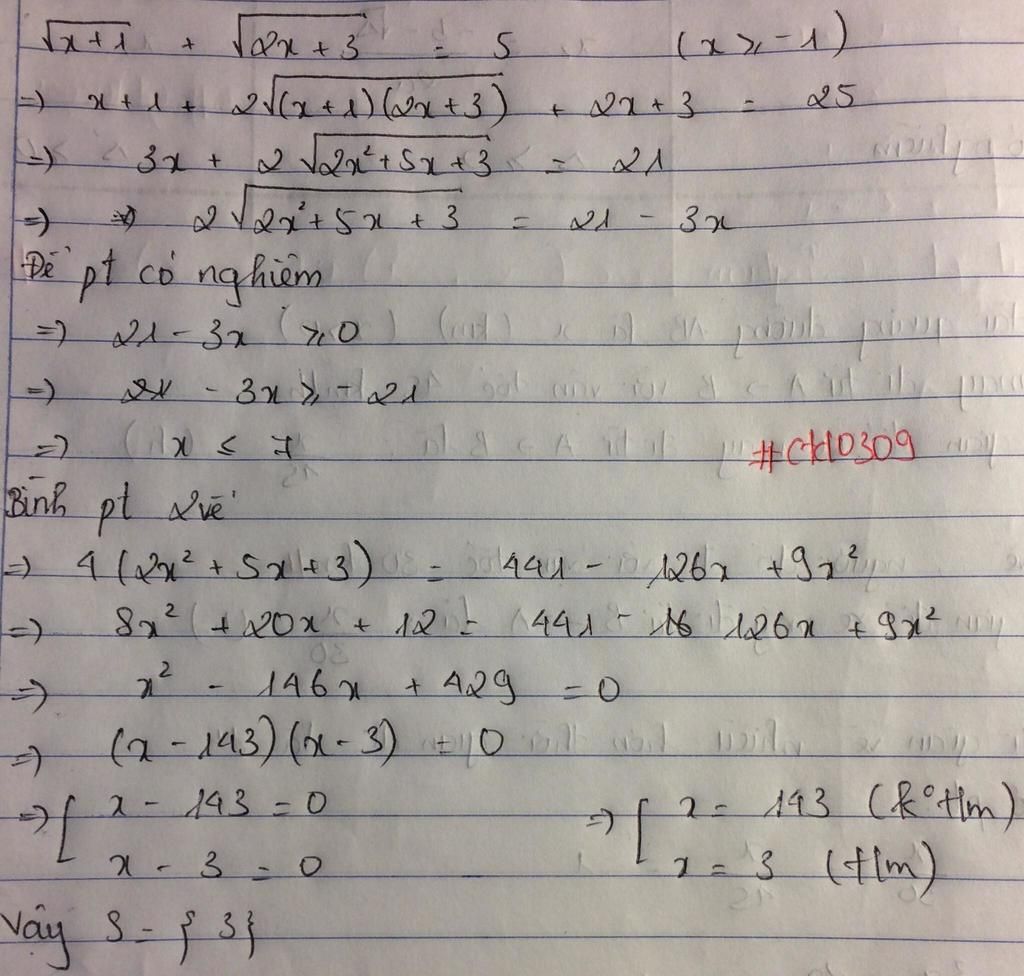 √(x+1) + √(2x+3) = 5 (x ≥ -1)
=> x+1+ 2√((x+1)(2x+3)) + 2x+3 = 25
=> 3x + 2√(2x²+5x+3) = 21
=> 2√(2x²+5x+3) = 21 - 3x
Để pt có nghiệm
=> 21 - 3x ≥ 0
=> - 3x ≥ -21
=> x ≤ 7
#ckl0309
Bình pt 2 vế
=> 4(2x²+5x+3) = 441 - 126x + 9x²
=> 8x² + 20x + 12 = 441 - 126x + 9x²
=> x² - 146x + 429 = 0
=> (x - 143)(x - 3) = 0
=> [ x - 143 = 0 => [ x = 143 (k° t/m)
x - 3 = 0 x = 3 (t/m)
Vậy S = {3}